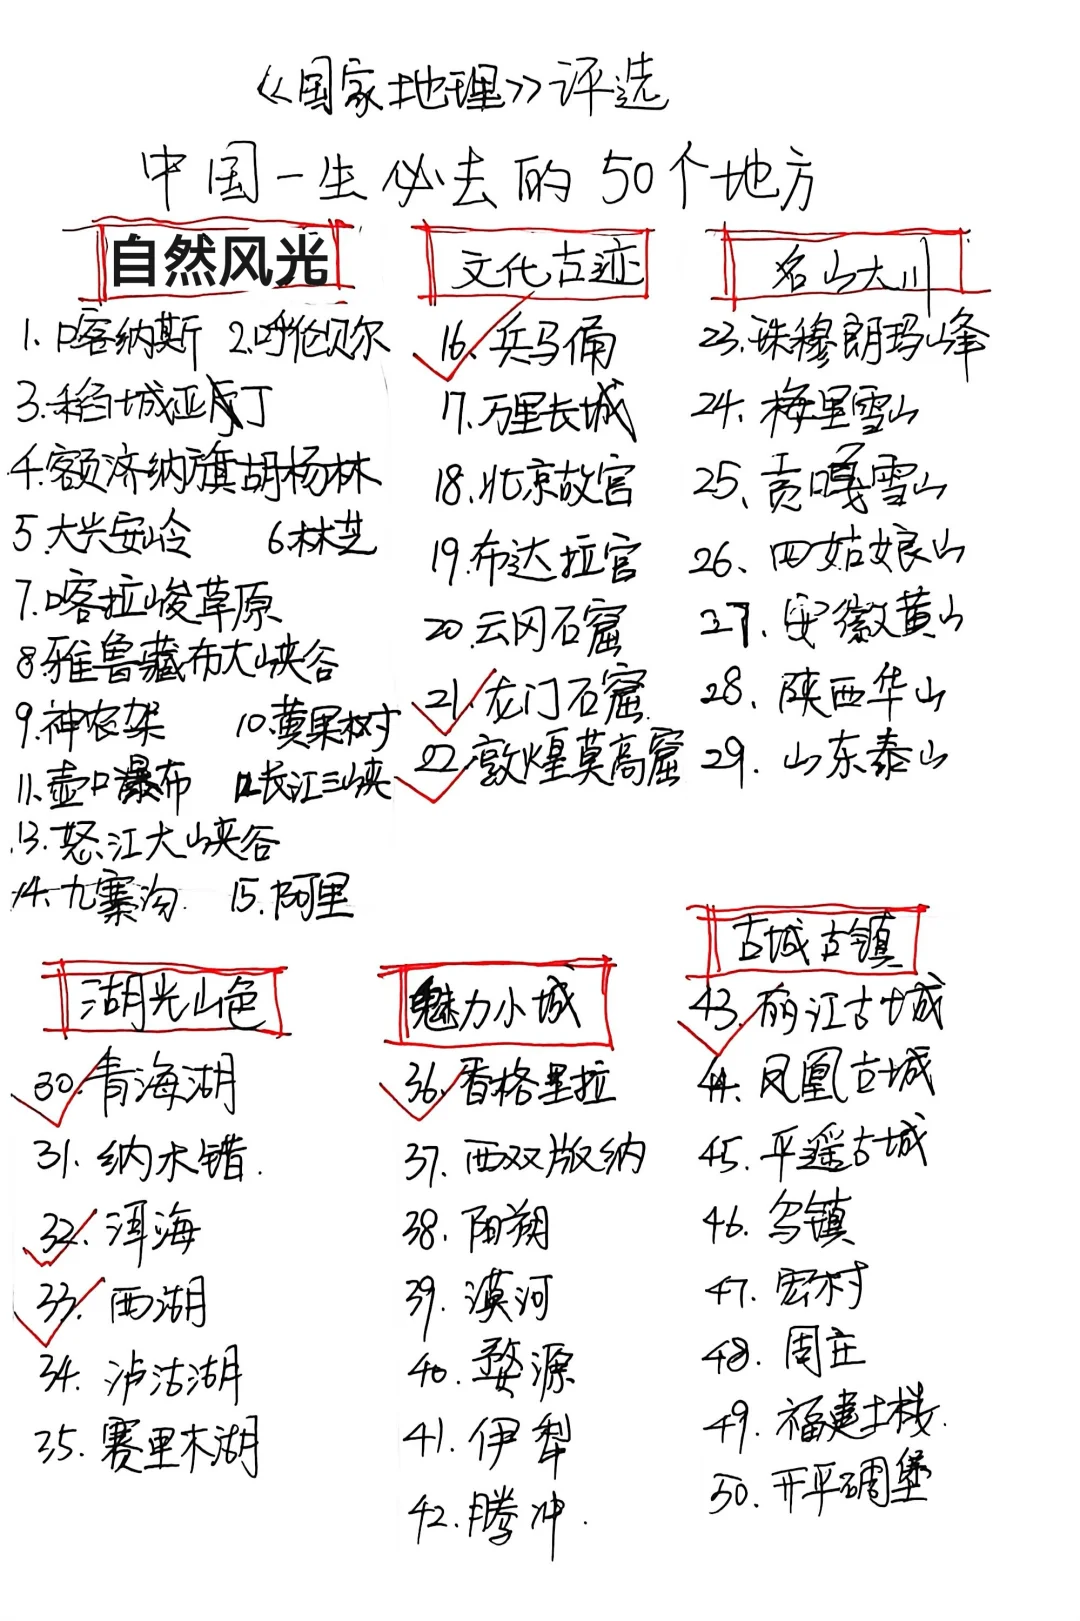 《国家地理》评选
中国一生必去的50个地方
自然风光
1.喀纳斯 2.呼伦贝尔
3.稻城亚丁
4.额济纳旗胡杨林
5.大兴安岭 6.林芝
7.喀拉峻草原
8.雅鲁藏布大峡谷
9.神农架 10.黄果树
11.壶口瀑布 12.长江三峡
13.怒江大峡谷
14.九寨沟. 15.阿里
文化古迹
16.兵马俑
17.万里长城
18.北京故宫
19.布达拉宫
20.云冈石窟
21.龙门石窟.
22.敦煌莫高窟
名山大川
23.珠穆朗玛峰
24.梅里雪山
25.贡嘎雪山
26.四姑娘山
27.安徽黄山
28.陕西华山
29.山东泰山
湖光山色
30.青海湖
31.纳木错.
32.洱海
33.西湖
34.泸沽湖
35.赛里木湖
魅力小城
36.香格里拉
37.西双版纳
38.阳朔
39.漠河
40.婺源
41.伊犁
42.腾冲.
古城古镇
43.丽江古城
44.凤凰古城
45.平遥古城
46.乌镇
47.宏村
48.周庄
49.福建土楼.
50.开平碉堡